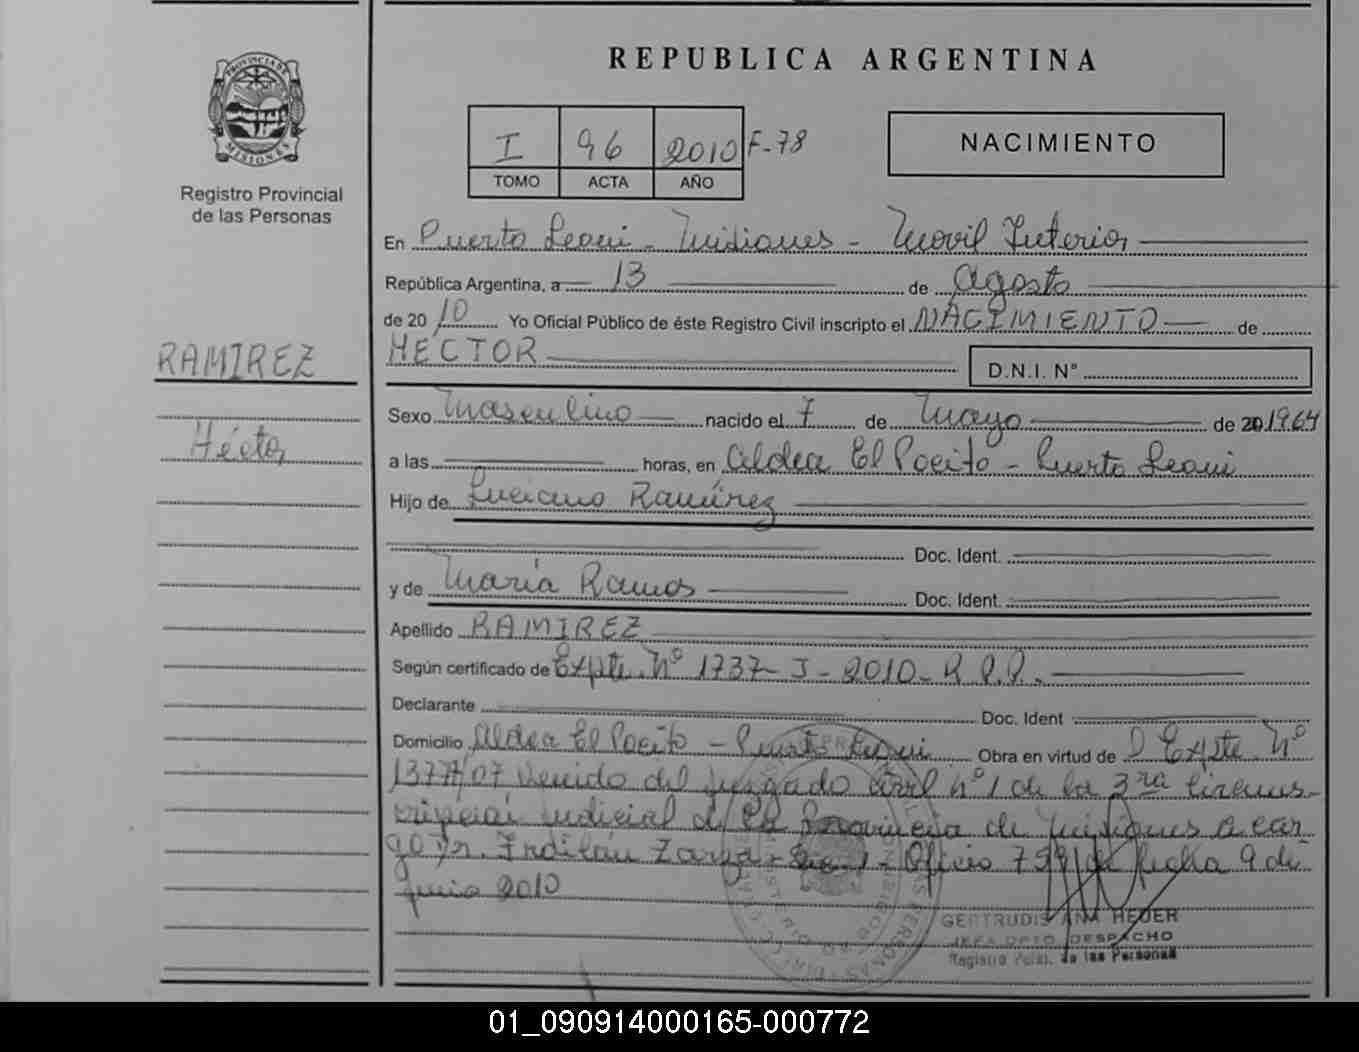 REPUBLICA ARGENTINA
PROVINCIA DE
MISIONES
Registro Provincial
de las Personas
I 96 2010 F-78
TOMO ACTA AÑO
NACIMIENTO
En Puerto Leoni - Misiones - Movil Interior
República Argentina, a 13 de Agosto
de 20 10 Yo Oficial Público de éste Registro Civil inscripto el NACIMIENTO de
RAMIREZ
HECTOR
D.N.I. Nº
Sexo Masculino nacido el 7 de Mayo de 20 1964
Héctor
a las horas, en Aldea El Pocito - Puerto Leoni
Hijo de Luciano Ramírez
Doc. Ident.
y de María Ramos
Doc. Ident.
Apellido RAMIREZ
Según certificado de Expte. Nº 1737-J-2010-R.P.P.
Declarante Doc. Ident
Domicilio Aldea El Pocito - Puerto Leoni Obra en virtud de Expte Nº
/07 Venido del Juzgado Civil nº 1 de la 3ra Circuns-
cripción Judicial de la Provincia de Misiones a car
go Dr. Zarza - Sec. 1 - Oficio de fecha 9 de
Junio 2010
GERTRUDIS ANA HEDER
JEFA DPTO. DESPACHO
Registro Pcial. de las Personas
01_090914000165-000772